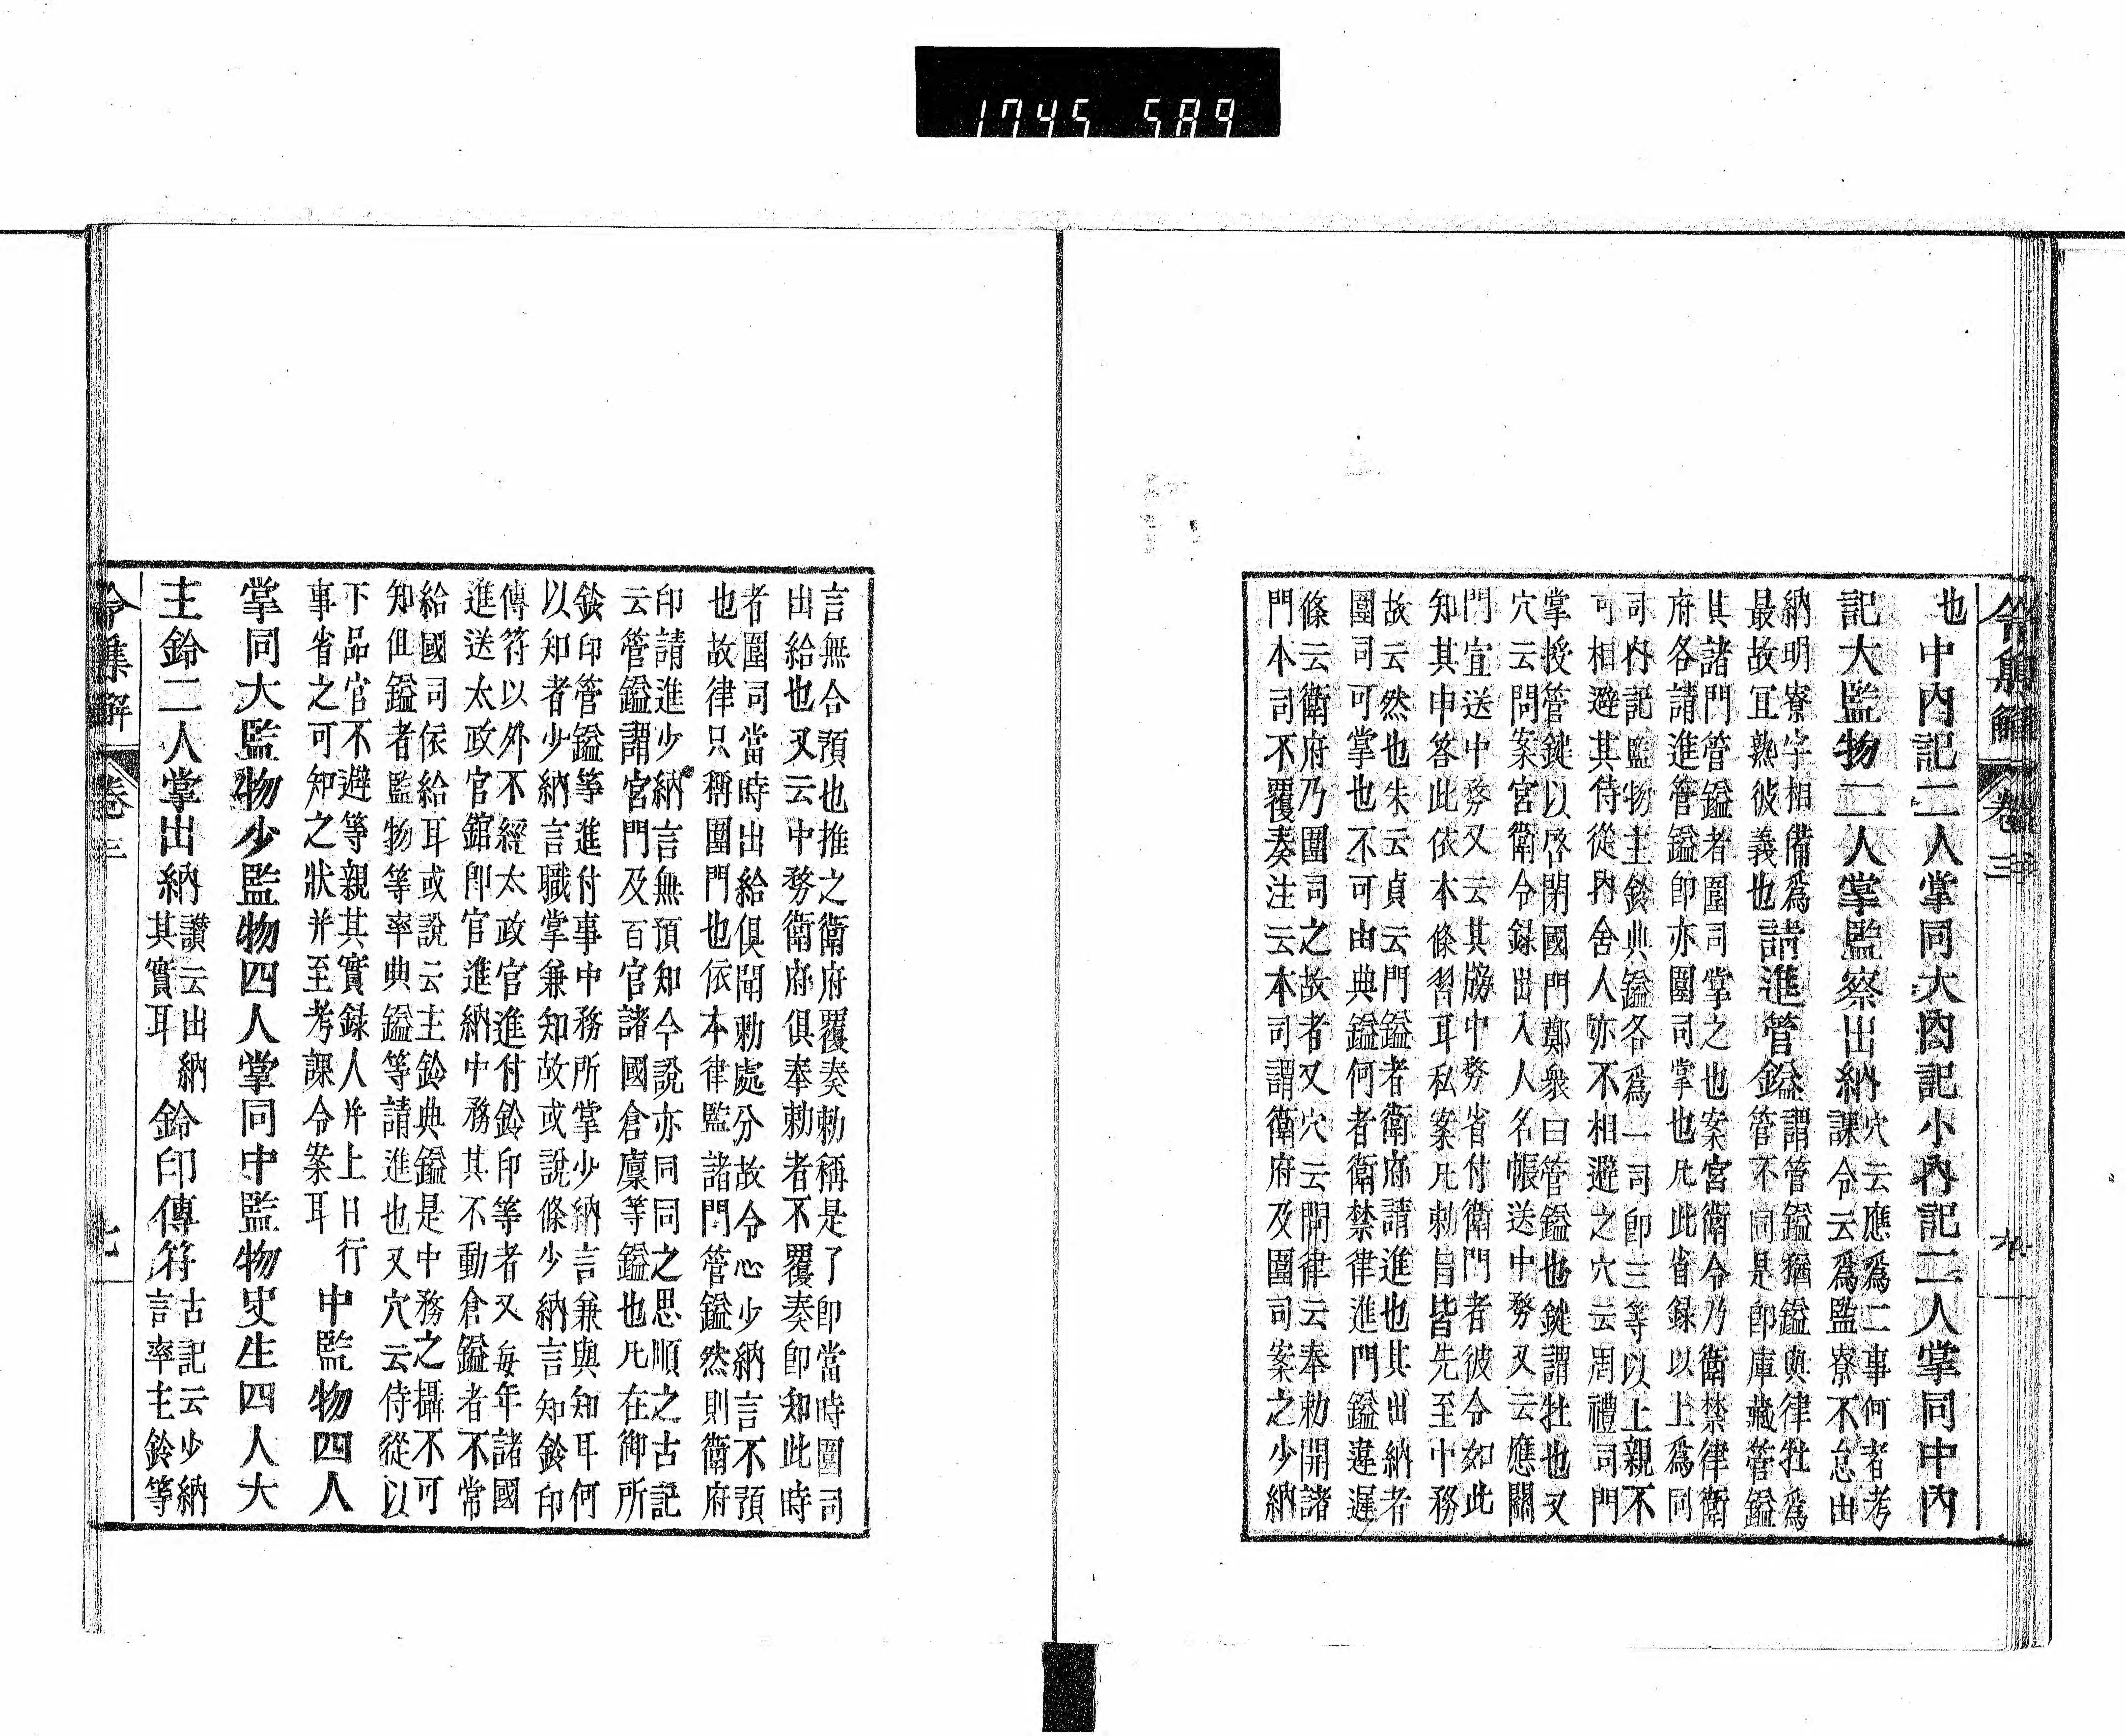 1745 589
令集解 卷三
也 中內記二人掌同大內記小內記二人掌同中內
記大監物二人掌監察出納穴云應爲二事何者考
課令云爲監寮不怠出
納明寮字相備爲
最故宜熟彼義也請進管鎰謂管鎰猶鎰與律牡爲
管不同是卽庫藏管鎰
其諸門管鎰者圍司掌之也案宮衛令乃衛禁律衛
府各請進管鎰卽亦圍司掌也凡此省録以上爲同
司內記監物主鈴典鎰各爲一司卽三等以上親不
可相避其侍從內舍人亦不相避之穴云周禮司門
掌授管鍵以啓閉國門鄭衆曰管鎰也鍵謂牡也又
穴云問案宮衛令録出入人名帳送中務又云應關
門宜送中務又云其牓中務省付衛門者彼令如此
知其申答此依本條習耳私案凡刺旨皆先至中務
故云然也朱云貞云門鎰者衛府請進也其出納者
圍司可掌也不可由典鎰何者衛禁律進門鎰違遲
條云衛府乃圍司之故者又穴云問律云奉勅開諸
門本司不覆奏注云本司謂衛府及圍司案之少納
言無合預也推之衛府覆奏勅稱是了卽當時圍司
出給也又云中務衛府俱奉勅者不覆奏卽知此時
者圍司當時出給俱聞勅處分故令心少納言不預
也故律只稱圍門也依本律監諸門管鎰然則衛府
印請進少納言無預知今說亦同同之思順之古記
云管鎰謂宮門及百官諸國倉廩等鎰也凡在御所
鈴印管鎰等進付事中務所掌少納言兼與知耳何
以知者少納言職掌兼知故或說條少納言知鈴印
傳符以外不經太政官進付鈴印等者又每年諸國
進送太政官舘卽官進納中務其不動倉鎰者不常
給國司依給耳或說云主鈴典鎰是中務之攝不可
知但鎰者監物等率典鎰等請進也又穴云侍從以
下品官不避等親其實録人并上日行
事省之可知之狀并至考課令案耳 中監物四人
掌同大監物少監物四人掌同中監物史生四人大
主鈴二人掌出納讃云出納
其實耳鈴印傳符古記云少納
言率主鈴等
令集解 卷三 七